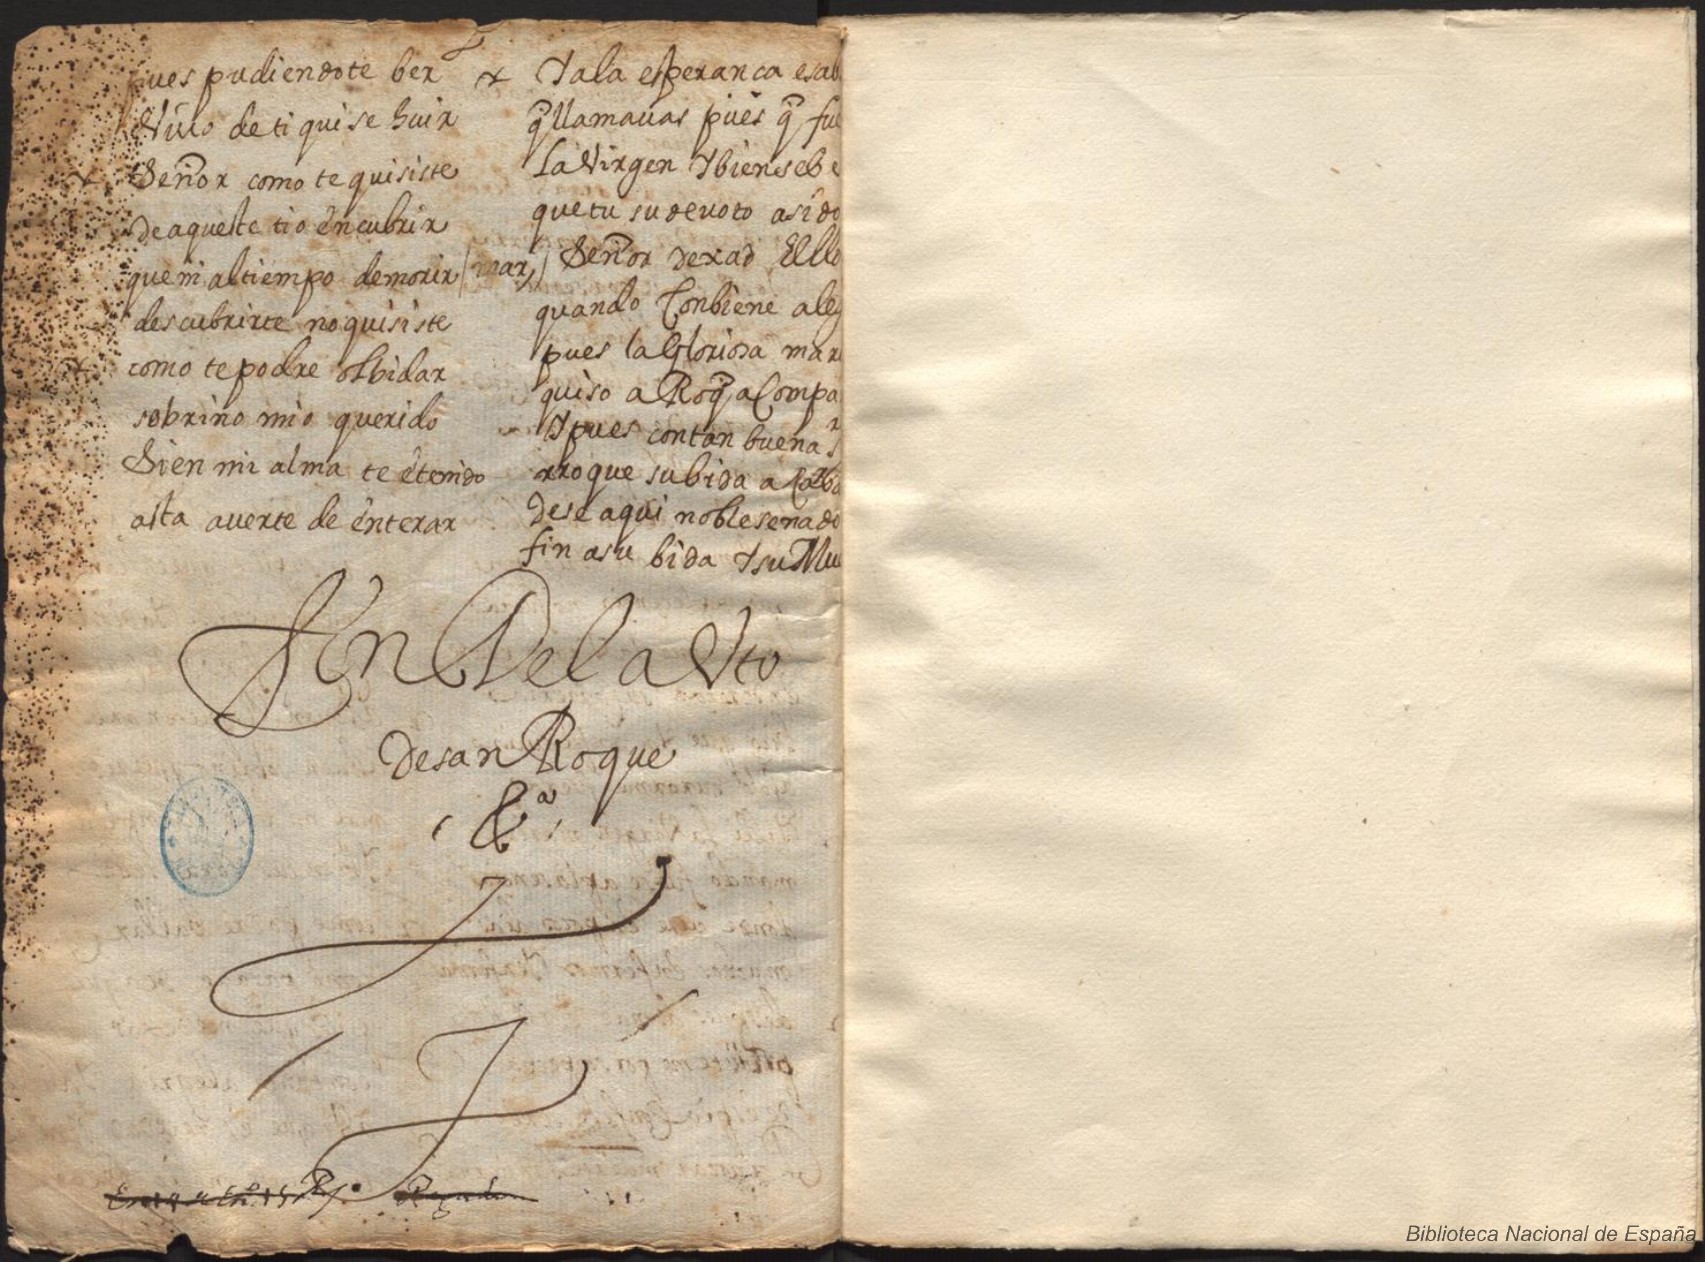 pues pudiendote ber
Vivo de ti quise huir
Señor como te quisiste
de aqueste tio encubrir
que ni al tiempo de morir
descubrirte no quisiste
como te podre olbidar
sobrino mio querido
Si en mi alma te é tenido
asta auerte de enterar
Y a la esperanca
q̃ llamauas pues q̃
La Virgen Y bien se be
que tu su devoto a sido
mar Señor dexad El
quando Conbiene
pues la Gloriosa
quiso a Roq̃
Y pues con tan buena
rroque su bida a
dese aqui noble senado
fin a su bida Y su
Fin Del aVto
de san Roque
&a